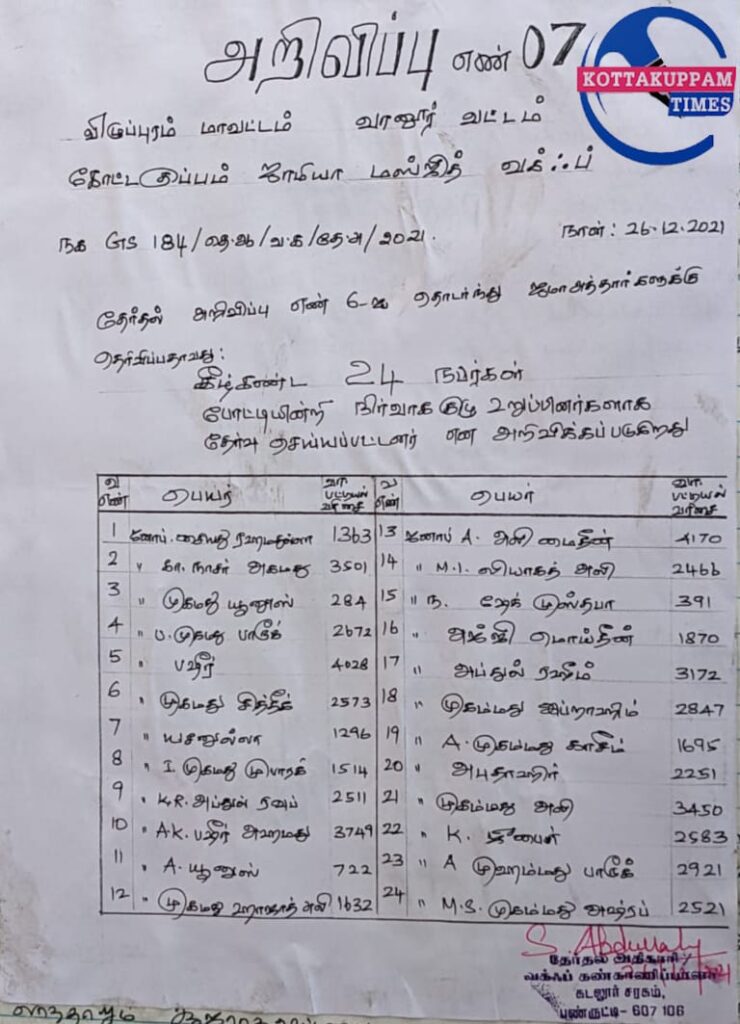 அறிவிப்பு எண் 07
KOTTAKUPPAM
TIMES
விழுப்புரம் மாவட்டம் வானூர் வட்டம்
கோட்டகுப்பம் ஜாமியா மஸ்ஜித் வக்ஃப்
நக GS 184/தே.ஆ/வ.க/தே.அ/2021. நாள்: 26.12.2021
தேர்தல் அறிவிப்பு எண் 6-ஐ தொடர்ந்து ஜமாஅத்தார்களுக்கு
தெரிவிப்பதாவது:
கீழ்கண்ட 24 நபர்கள்
போட்டியின்றி நிர்வாக குழு உறுப்பினர்களாக
தேர்வு செய்யப்பட்டனர் என அறிவிக்கப்படுகிறது
வ எண் பெயர் வா. பட்டியல் வரிசை வ எண் பெயர் வா. பட்டியல் வரிசை
1 ஜனாப். சையது ரஹமதுல்லா 1363 13 ஜனாப் A. அலி மைதீன் 4170
2 " கா. நாசர் அகமது 3501 14 " M.I. லியாகத் அலி 2466
3 " முகமது யூனுஸ் 284 15 " ந. ஷேக் முஸ்தபா 391
4 " ப. முகமது பாரூக் 2672 16 " அஜ்ஜி மொய்தீன் 1870
5 " பஷீர் 4028 17 " அப்துல் ரஹீம் 3172
6 " முகமது சித்தீக் 2573 18 " முகம்மது இப்ராஹிம் 2847
7 " யசனுல்லா 1296 19 " A. முகம்மது காசிம் 1695
8 " I. முகமது முபாரக் 1514 20 " அபுதாஹிர் 2251
9 " K.R. அப்துல் ரவுப் 2511 21 " முகம்மது அலி 3450
10 " A.K. பஷீர் அஹமது 3749 22 " K. ஜுபைர் 2583
11 " A. யூனுஸ் 722 23 " A முஹம்மது பாரூக் 2921
12 " முகமது ஹாஜாத் அலி 1632 24 " M.S. முகம்மது அஷ்ரப் 2521
S. Abdullah
தேர்தல் அதிகாரி/
வக்ஃப் கண்காணிப்பாளர்
கடலூர் சரகம்,
பண்ருட்டி- 607 106